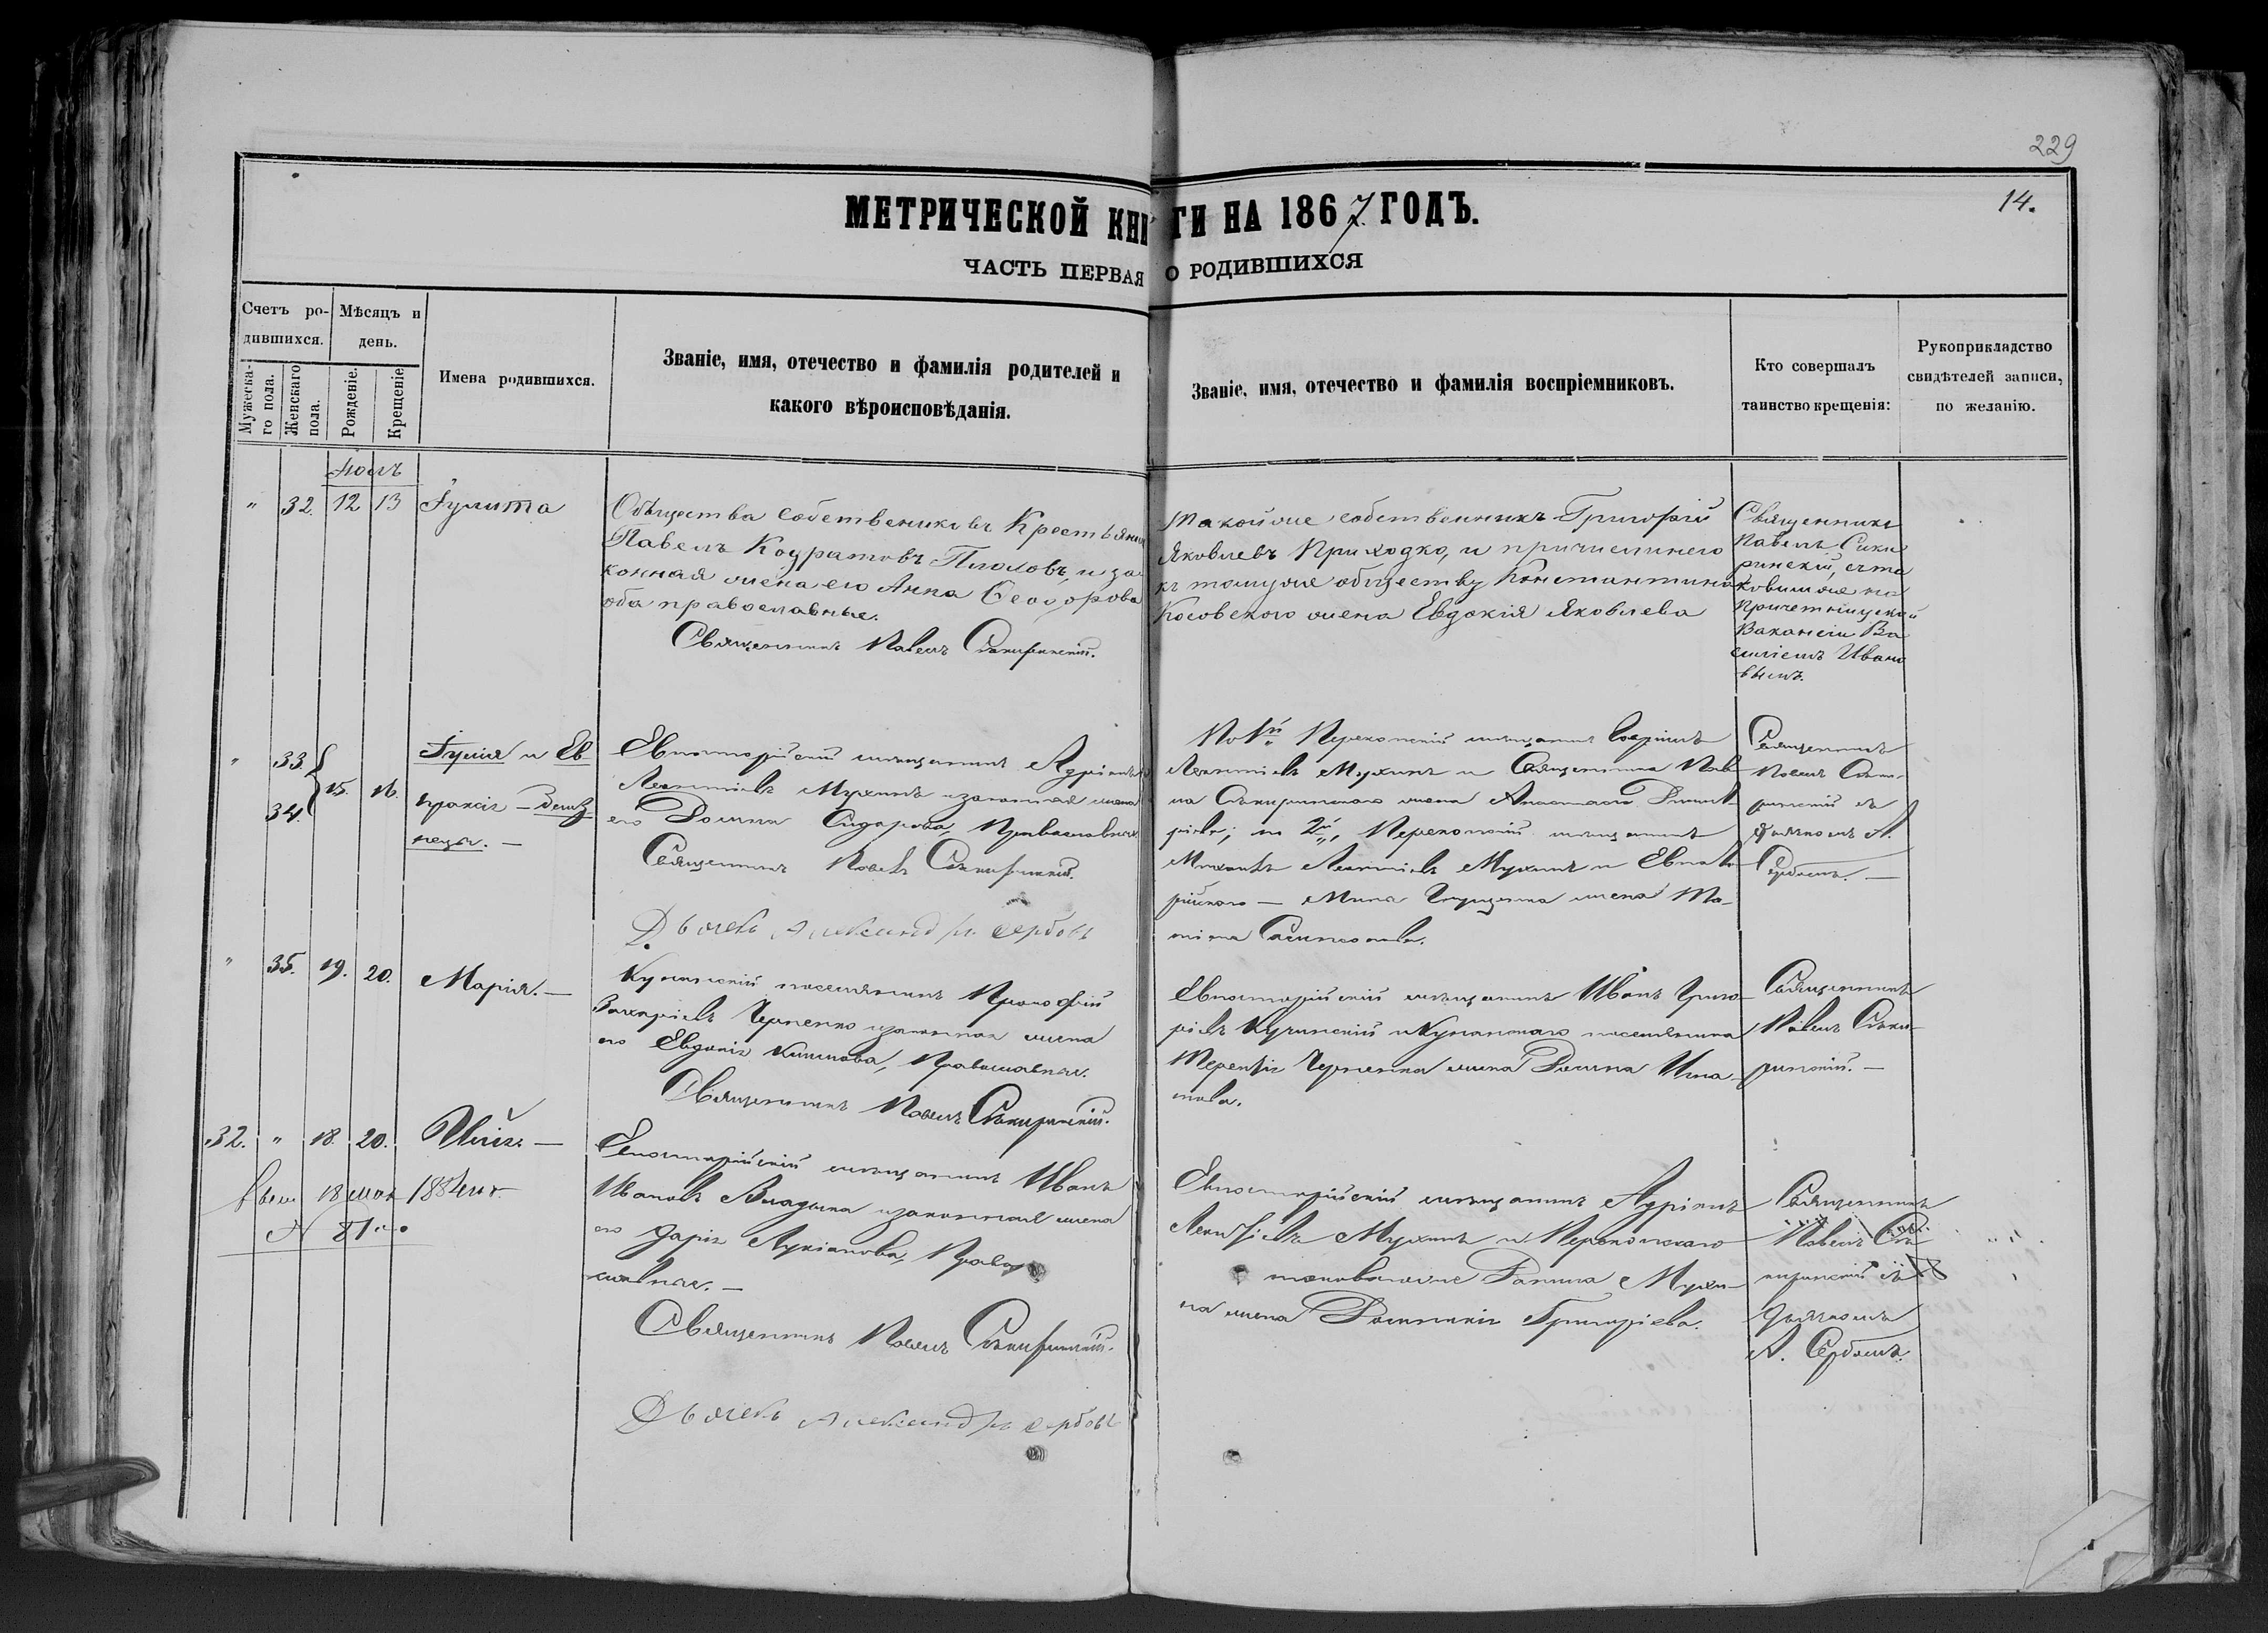 229
14.
МЕТРИЧЕСКОЙ КНИГИ НА 1867 ГОДЪ.
ЧАСТЬ ПЕРВАЯ О РОДИВШИХСЯ
Счетъ ро-
дившихся.
Мужеска-
го пола.
Женскаго
пола.
Мѣсяцъ и
день.
Рожденіе.
Крещеніе
Имена родившихся.
Званіе, имя, отечество и фамилія родителей и
какого вѣроисповѣданія.
Званіе, имя, отечество и фамилія воспріемниковъ.
Кто совершалъ
таинство крещенія:
Рукоприкладство
свидѣтелей записи,
по желанію.
Іюль
" 32. 12 13 Іулита
Общества собствениковъ Крестьянинъ
Павелъ Кодратовъ и за
конная жена его Анна Ѳеодорова
оба православные.
Священникъ Павелъ Сѣкиринскій.
Такойже собственникъ Григорій
Яковлевъ Приходко, и причисленнего
къ томуже обществу Константина
Косовского жена Евдокія Яковлева
Священникъ
Павелъ Сики
ринскій, съ та
ковымже на
причетнической
Вакансіи Ва
силіемъ Ивано
вымъ.
" 33. 34. 15. 16.
Іулія и Ев
праксія – близ
нецы. –
Евпаторійскій мѣщанинъ Адріанъ
Леонтіевъ Мухинъ и законная жена
его Домна Сидорова, Православные.
Священникъ Павелъ Сѣкиринскій.
Дьячекъ Александръ Сербовъ
По 1й Перекопскій мѣщанинъ
Леонтіевъ Мухинъ и Священника Пав
ла Сѣкиринского жена Анастасія Димит
ріева; по 2й, Перекопскій мѣщанинъ
Леонтіевъ Мухинъ и Евпато
рійского – жена
Священникъ
Павелъ Сѣки-
ринскій съ
дьячкомъ А.
Сербовымъ. –
" 35. 19. 20. Марія. –
поселянинъ Прокофій
Захаріевъ Черненко и законная жена
его Евдокія Климова, Православные.
Священникъ Павелъ Сѣкиринскій.
Евпаторійскій мѣщанинъ Иванъ Григо-
ріевъ Кучинскій и поселянина
Терентія Черненка жена Домна Игна-
това.
Священникъ
Павелъ Сѣки-
ринскій. –
32. " 18. 20. Илія. –
18 мая 1884 г.
N 81
Евпаторійскій мѣщанинъ Иванъ
Ивановъ и законная жена
его Дарія Лукіанова, Право
славные. –
Священникъ Павелъ Сѣкиринскій.
Дьячекъ Александръ Сербовъ
Евпаторійскій мѣщанинъ Адріанъ
Леонтіевъ Мухинъ и Перекопскаго
Мухи-
на жена Григоріева.
Священникъ
Павелъ Сѣ
киринскій съ
дьячкомъ
А. Сербовымъ.